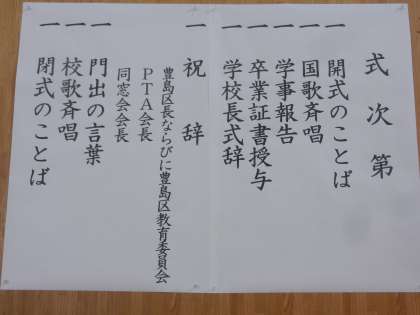 式次第
一 開式のことば
一 国歌斉唱
一 学事報告
一 卒業証書授与
一 学校長式辞
一 祝辞
豊島区長ならびに豊島区教育委員会
PTA会長
同窓会会長
一 門出の言葉
一 校歌斉唱
一 閉式のことば